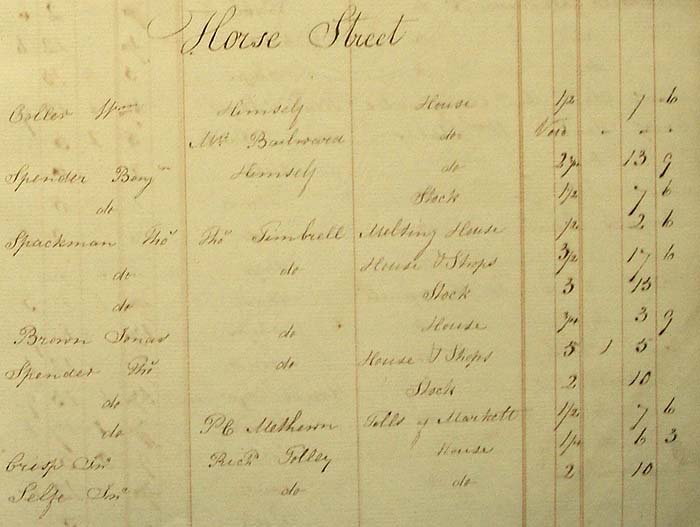 Horse Street
Himself House 1/2 7 6
Mr Bailward do Void - - -
Spender Benjn Himself do 2 3/4 13 9
do Stock 1 1/2 7 6
Spackman Thos Thos Timbrell Melting House 1/2 2 6
do do House & Shops 3 1/2 17 6
do Stock 3 15
Brown Jonas do House 3/4 3 9
Spender Thos do House & Shops 5 1 5 -
do Stock 2 10
do P C Methewn Tolls of Markett 1 1/2 7 6
Crisp Jno Richd Tolley House 1 1/4 6 3
Selfe Jno do do 2 10